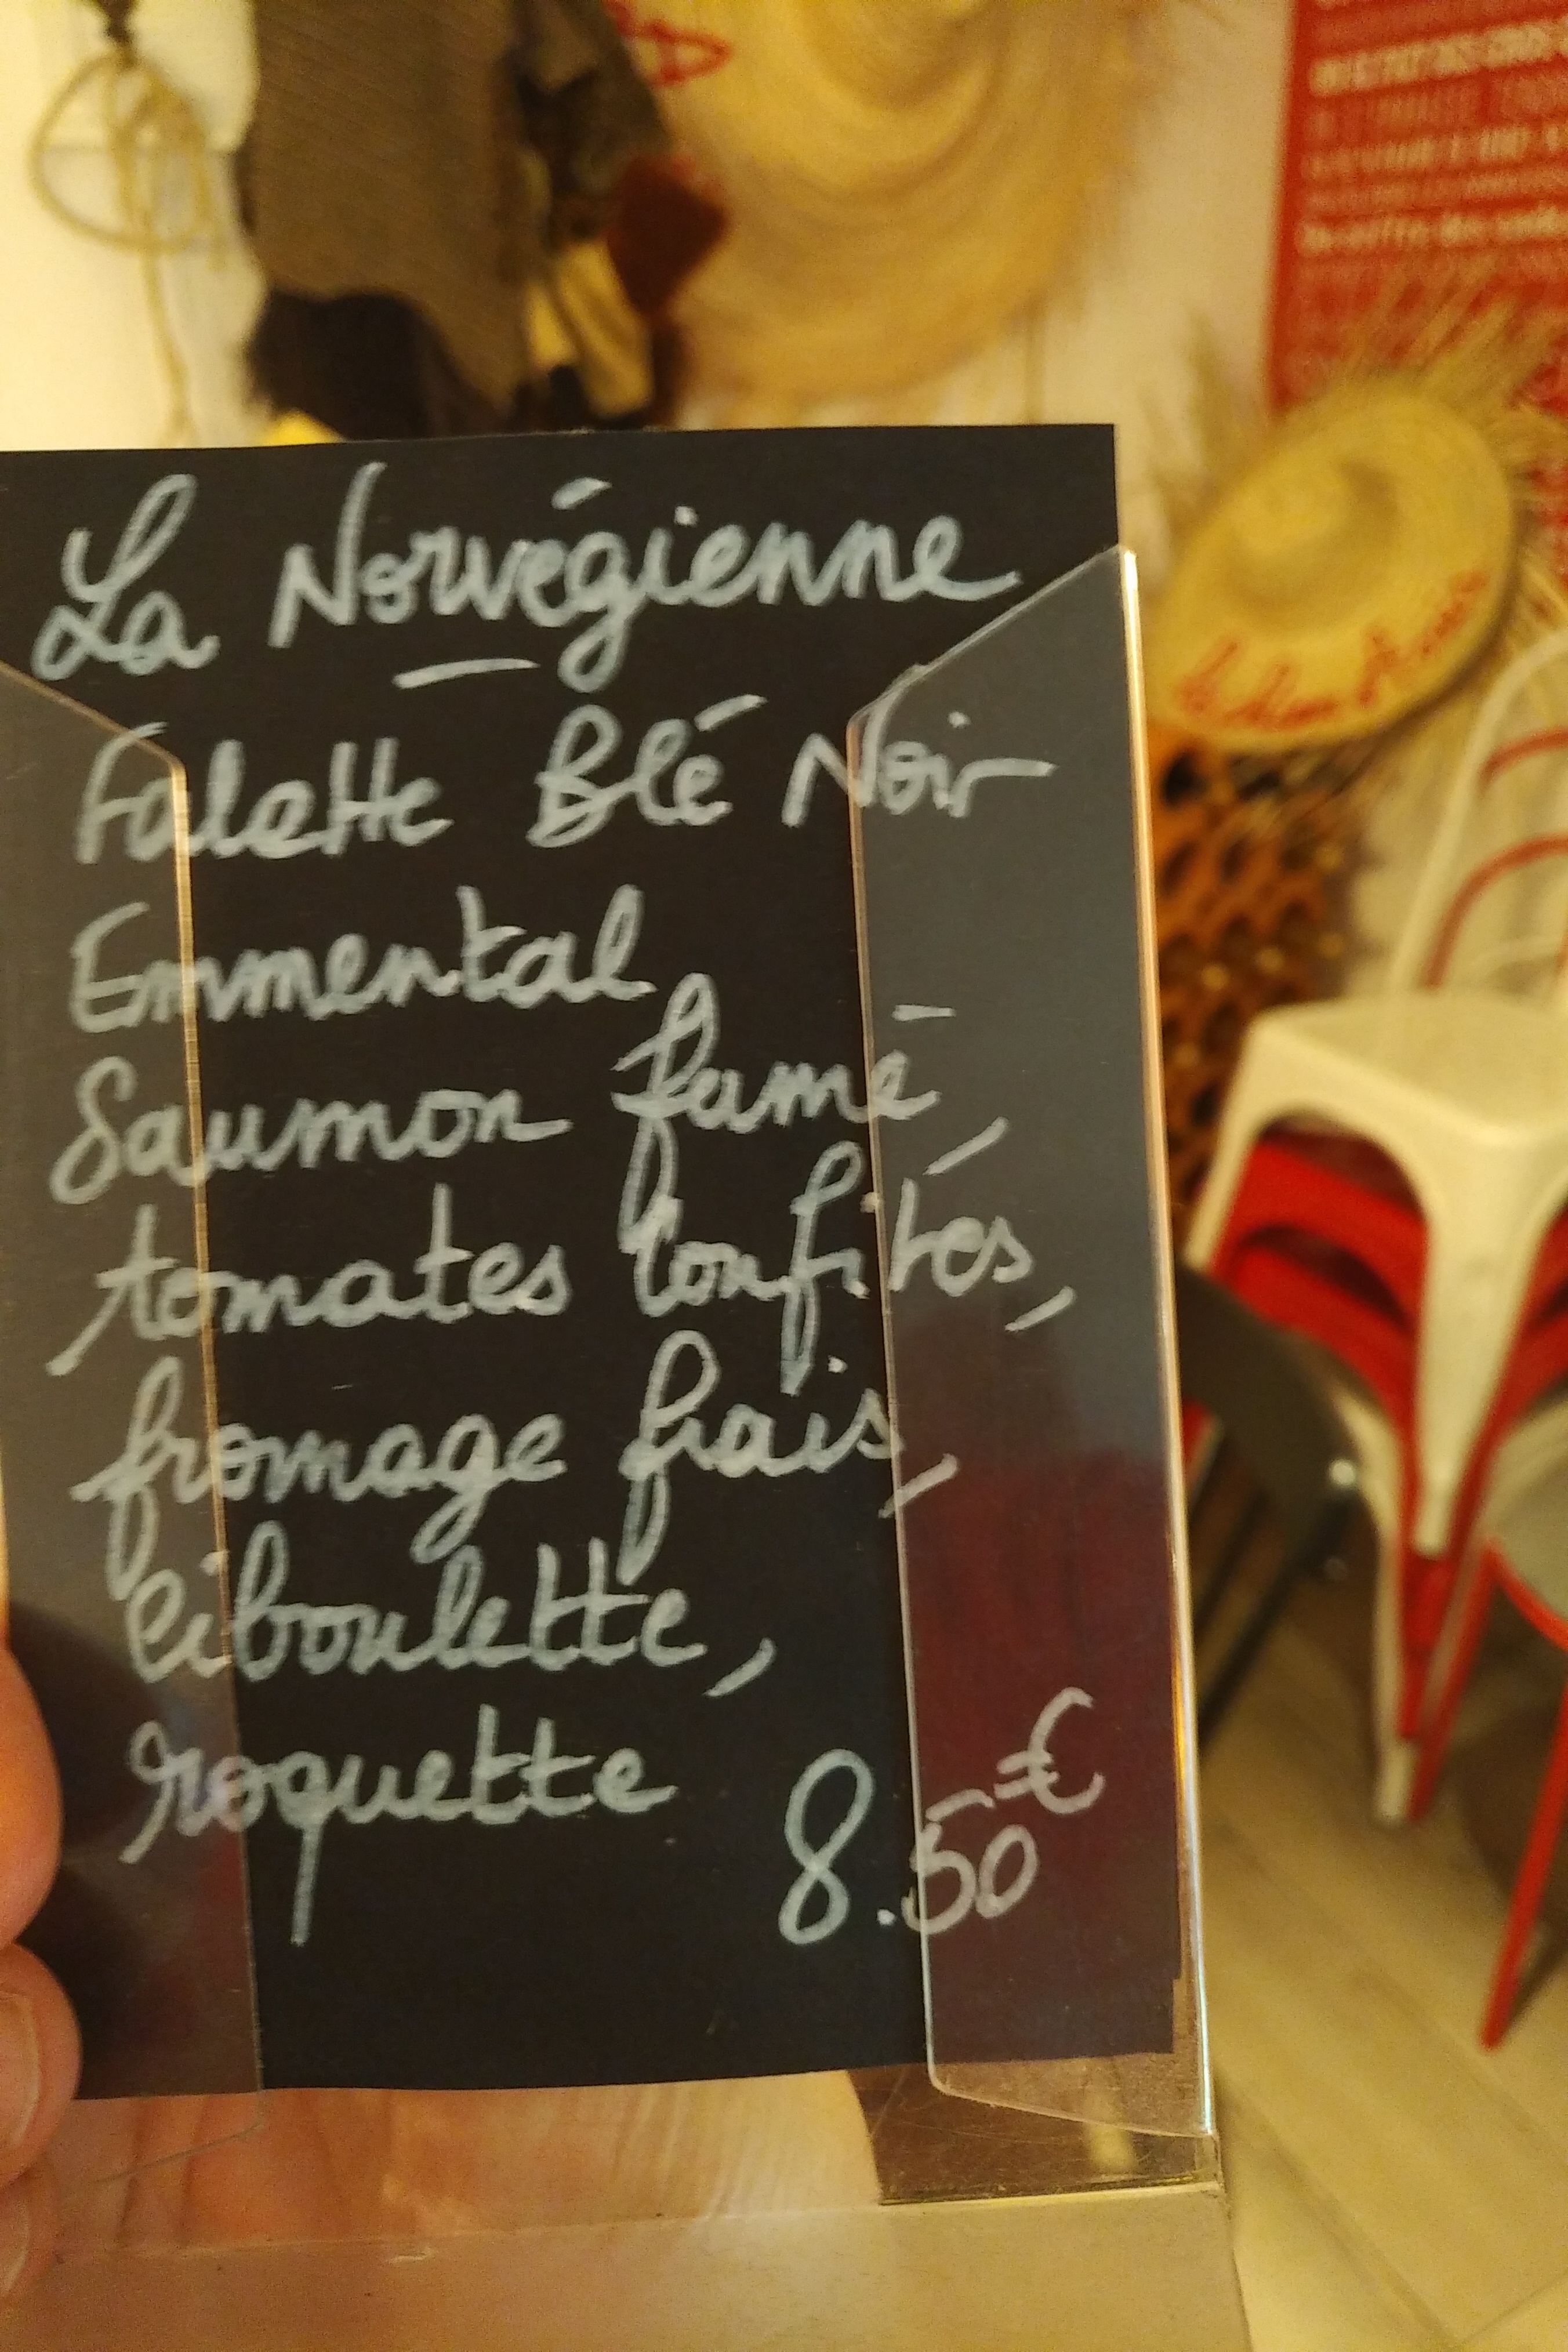 La Norvégienne
Galette Blé Noir
Emmental
Saumon fumé,
tomates confites,
fromage frais,
ciboulette,
roquette
8.50€